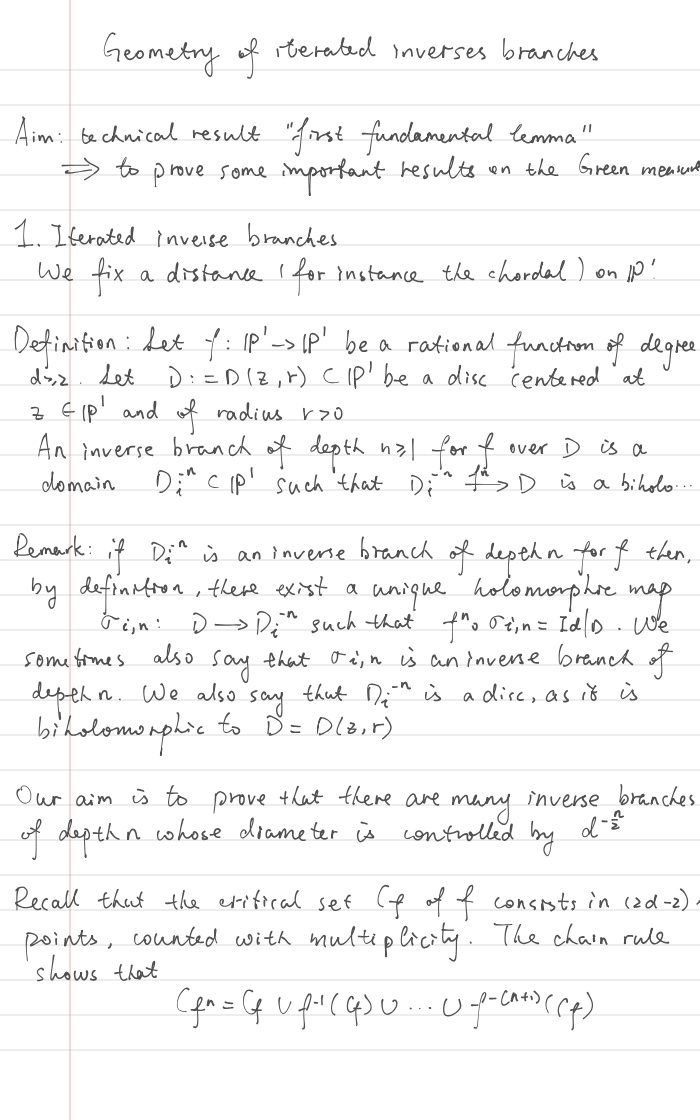 Geometry of iterated inverses branches
Aim: technical result "first fundamental lemma"
⇒ to prove some important results on the Green measure
1. Iterated inverse branches
We fix a distance (for instance the chordal) on ℙ¹
Definition: Let f: ℙ¹→ℙ¹ be a rational function of degree
d≥2. Let D:=D(z,r)⊂ℙ¹ be a disc centered at
z∈ℙ¹ and of radius r>0
An inverse branch of depth n≥1 for f over D is a
domain Dᵢ⁻ⁿ⊂ℙ¹ such that Dᵢ⁻ⁿ –fⁿ→ D is a biholo...
Remark: if Dᵢ⁻ⁿ is an inverse branch of depth n for f then,
by definition, there exist a unique holomorphic map
σi,n: D→Dᵢ⁻ⁿ such that fⁿ∘σi,n = Id|D. We
sometimes also say that σi,n is an inverse branch of
depth n. We also say that Dᵢ⁻ⁿ is a disc, as it is
biholomorphic to D = D(z,r)
Our aim is to prove that there are many inverse branches
of depth n whose diameter is controlled by d^{-n/2}
Recall that the critical set Cf of f consists in (2d-2)-
points, counted with multiplicity. The chain rule
shows that
Cfⁿ = Cf ∪ f⁻¹(Cf) ∪ ... ∪ f^{-(n+1)}(Cf)